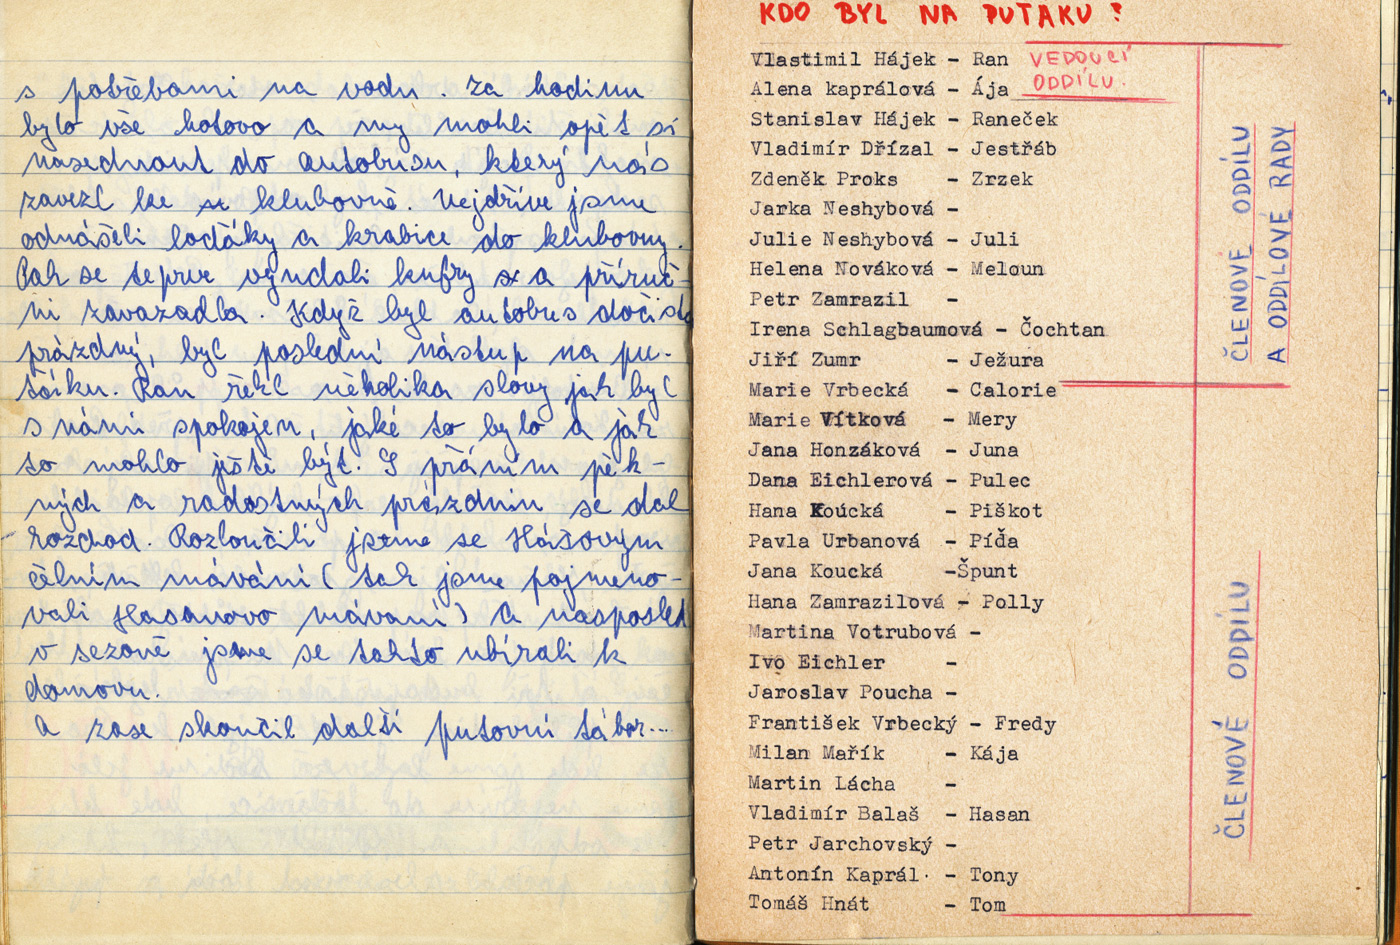 s potřebami na vodu. Za hodinu
bylo vše hotovo a my mohli opět si
nasednout do autobusu, který nás
zavezl ke klubovně. Nejdříve jsme
odnášeli loďáky a krabice do klubovny.
Pak se teprve vyndali kufry a a příruč-
ní zavazadla. Když byl autobus dočista
prázdný, byl poslední nástup na pu-
ťáku. Ran řekl několika slovy jak byl
s námi spokojen, jaké to bylo a jak
to mohlo ještě být. S přáním pěk-
ných a radostných prázdnin se dal
rozchod. Rozloučili jsme se Hášovým
čelním máváním (tak jsme pojmeno-
vali Hasanovo mávání) a naposled
v sezoně jsme se takto ubírali k
domovu.
A zase skončil další putovní tábor...
KDO BYL NA PUŤÁKU?
Vlastimil Hájek - Ran VEDOUCÍ
Alena kaprálová - Ája ODDÍLU.
Stanislav Hájek - Raneček
Vladimír Dřízal - Jestřáb
Zdeněk Proks - Zrzek
Jarka Neshybová -
Julie Neshybová - Juli
Helena Nováková - Meloun
Petr Zamrazil -
Irena Schlagbaumová - Čochtan
Jiří Zumr - Ježura
Marie Vrbecká - Calorie
Marie Vítková - Mery
Jana Honzáková - Juna
Dana Eichlerová - Pulec
Hana Koucká - Piškot
Pavla Urbanová - Píďa
Jana Koucká -Špunt
Hana Zamrazilová - Polly
Martina Votrubová -
Ivo Eichler -
Jaroslav Poucha -
František Vrbecký - Fredy
Milan Mařík - Kája
Martin Lácha -
Vladimír Balaš - Hasan
Petr Jarchovský -
Antonín Kaprál - Tony
Tomáš Hnát - Tom
ČLENOVÉ ODDÍLU
A ODDÍLOVÉ RADY
ČLENOVÉ ODDÍLU